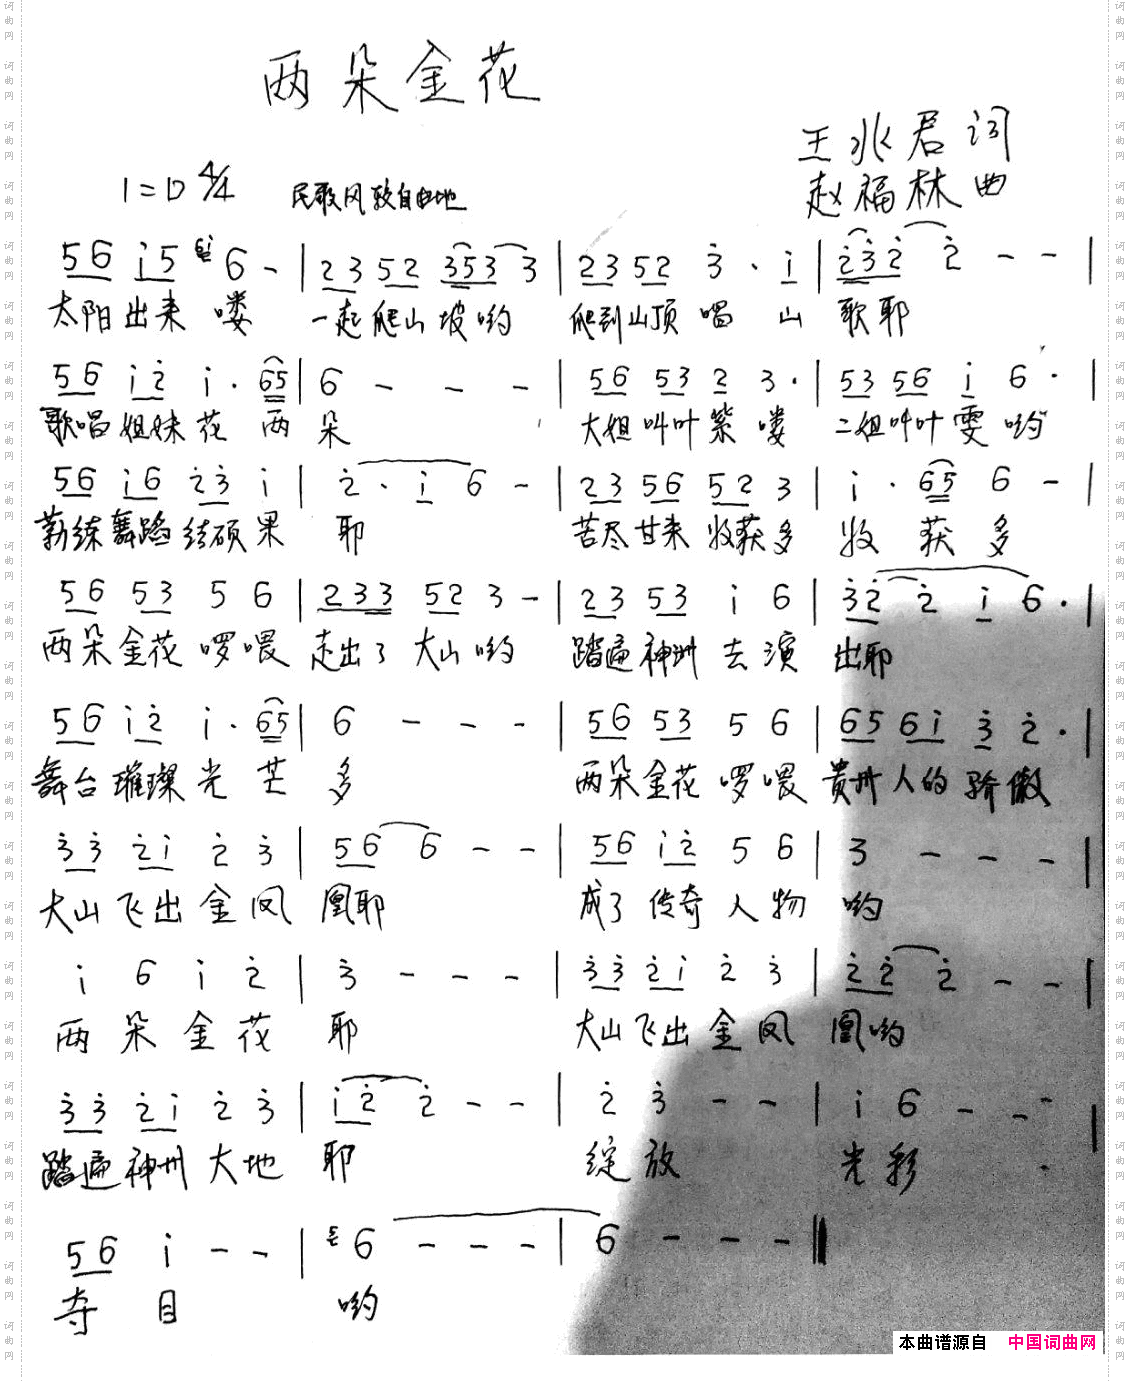 两朵金花
王兆君 词
1=D 4/4 民歌风 较自由地
赵福林 曲
56 i5 6 - | 23 52 353 3 | 23 52 3 · i | 232 2 - - |
太阳出来喽 一起爬山坡哟 爬到山顶唱山歌耶
56 i2 i · 65 | 6 - - - | 56 53 2 3 · | 53 56 i 6 · |
歌唱姐妹花两朵 大姐叫叶紫喽 二姐叫叶雯哟
56 i6 23 i | 2 · i 6 - | 23 56 52 3 | i · 65 6 - |
勤练舞蹈结硕果耶 苦尽甘来收获多 收获多
56 53 5 6 | 233 52 3 - | 23 53 i 6 | 32 2 i 6 · |
两朵金花啰喂 走出了大山哟 踏遍神州去演出耶
56 i2 i · 65 | 6 - - - | 56 53 5 6 | 65 6i 3 2 · |
舞台璀璨光芒多 两朵金花啰喂 贵州人的骄傲
33 2i 2 3 | 56 6 - - | 56 i2 5 6 | 3 - - - |
大山飞出金凤凰耶 成了传奇人物哟
i 6 i 2 | 3 - - - | 33 2i 2 3 | 22 2 - - |
两朵金花耶 大山飞出金凤凰哟
33 2i 2 3 | i2 2 - - | 2 3 - - | i 6 - - - |
踏遍神州大地耶 绽放光彩
56 i - - | 6 - - - | 6 - - - ‖
夺目哟
本曲谱源自 中国词曲网